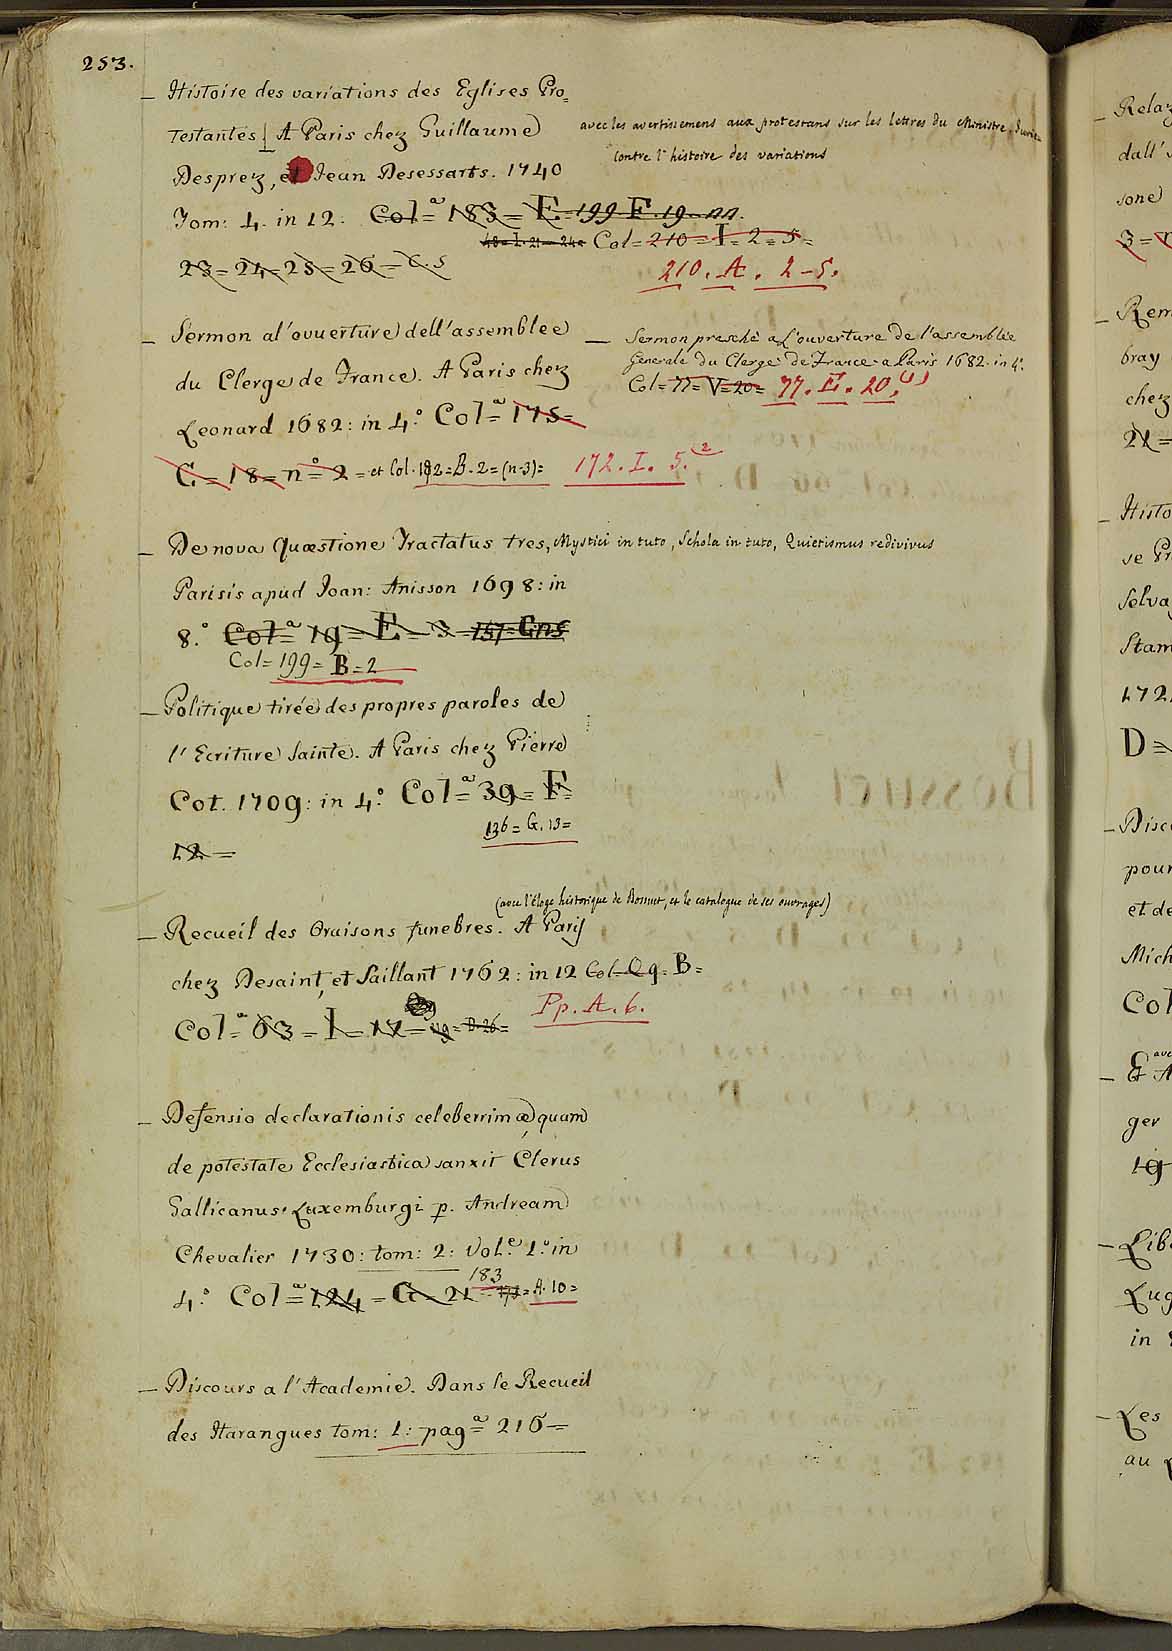 253.
— Histoire des variations des Eglises Pro=
testantes | A Paris chez Guillaume
avec les avertissemens aux protestans sur les lettres du Ministre Jurieu
contre l'histoire des variations
Desprez, et Jean Desessarts. 1740
Tom: 4. in 12. Col.ª 183 = E = 199. F. 19 = nn.
48 = I. 21 = 24 = Col = 210 = I = 2 = 5 =
23 = 24 = 25 = 26 = C. 5
210. A. 2-5.
— Sermon al'ouverture dell'assemblee
du Clerge de France. A Paris chez
Leonard 1682: in 4.° Col.ª 175 =
C = 18 = n° 2 = et Col. 182 = B. 2 = (n-3) = 172. I. 5. (2
— Sermon presché a L'ouverture de l'assemblée
Generale du Clergé de France a Paris 1682. in 4.°
Col = 77 = V = 20 = 77. E. 20. (1)
— De nova Quæstione Tractatus tres, Mystici in tuto, Schola in tuto, Quietismus redivivus
Parisis apud Joan: Anisson 1698: in
8.° Col.ª 19 = E = 3 = 157 = G. 15
Col = 199 = B = 2
— Politique tirée des propres paroles de
l'Ecriture Sainte. A Paris chez Pierre
Cot. 1709: in 4.° Col.ª 39 = F =
136 = G. 13 =
12 =
(avec l'éloge historique de Bossuet, et le catalogue de ses ouvrages)
— Recueil des Oraisons funebres. A Paris
chez Desaint, et Saillant 1762: in 12 Col. Qq. B =
Col.ª 63 = I = 17 = 49 = D. 26 =
Pp. A. 6.
— Defensio declarationis celeberrimæ, quam
de potestate Ecclesiastica sanxit Clerus
Gallicanus. Luxemburgi p. Andream
Chevalier 1730: tom: 2: Vol.e 1.° in
183
4.° Col.ª 124 = G = 21 = 173 = A. 10 =
— Discours a l'Academie. Dans le Recueil
des Harangues tom: 1: pag.ª 216 =
— Relaz
dall'
sone
3 =
— Rem
bray
chez
21 =
— Histo
se Pr
Selva
Stam
172
D =
— Disc
pour
et de
Mich
Col
— Et A
ger
19
— Libe
Lug
in
— Les
au